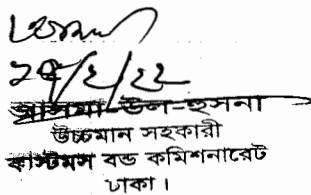 ২৭/২/২২
আসমা-উল-হুসনা
উচ্চমান সহকারী
কাস্টমস বন্ড কমিশনারেট
ঢাকা।